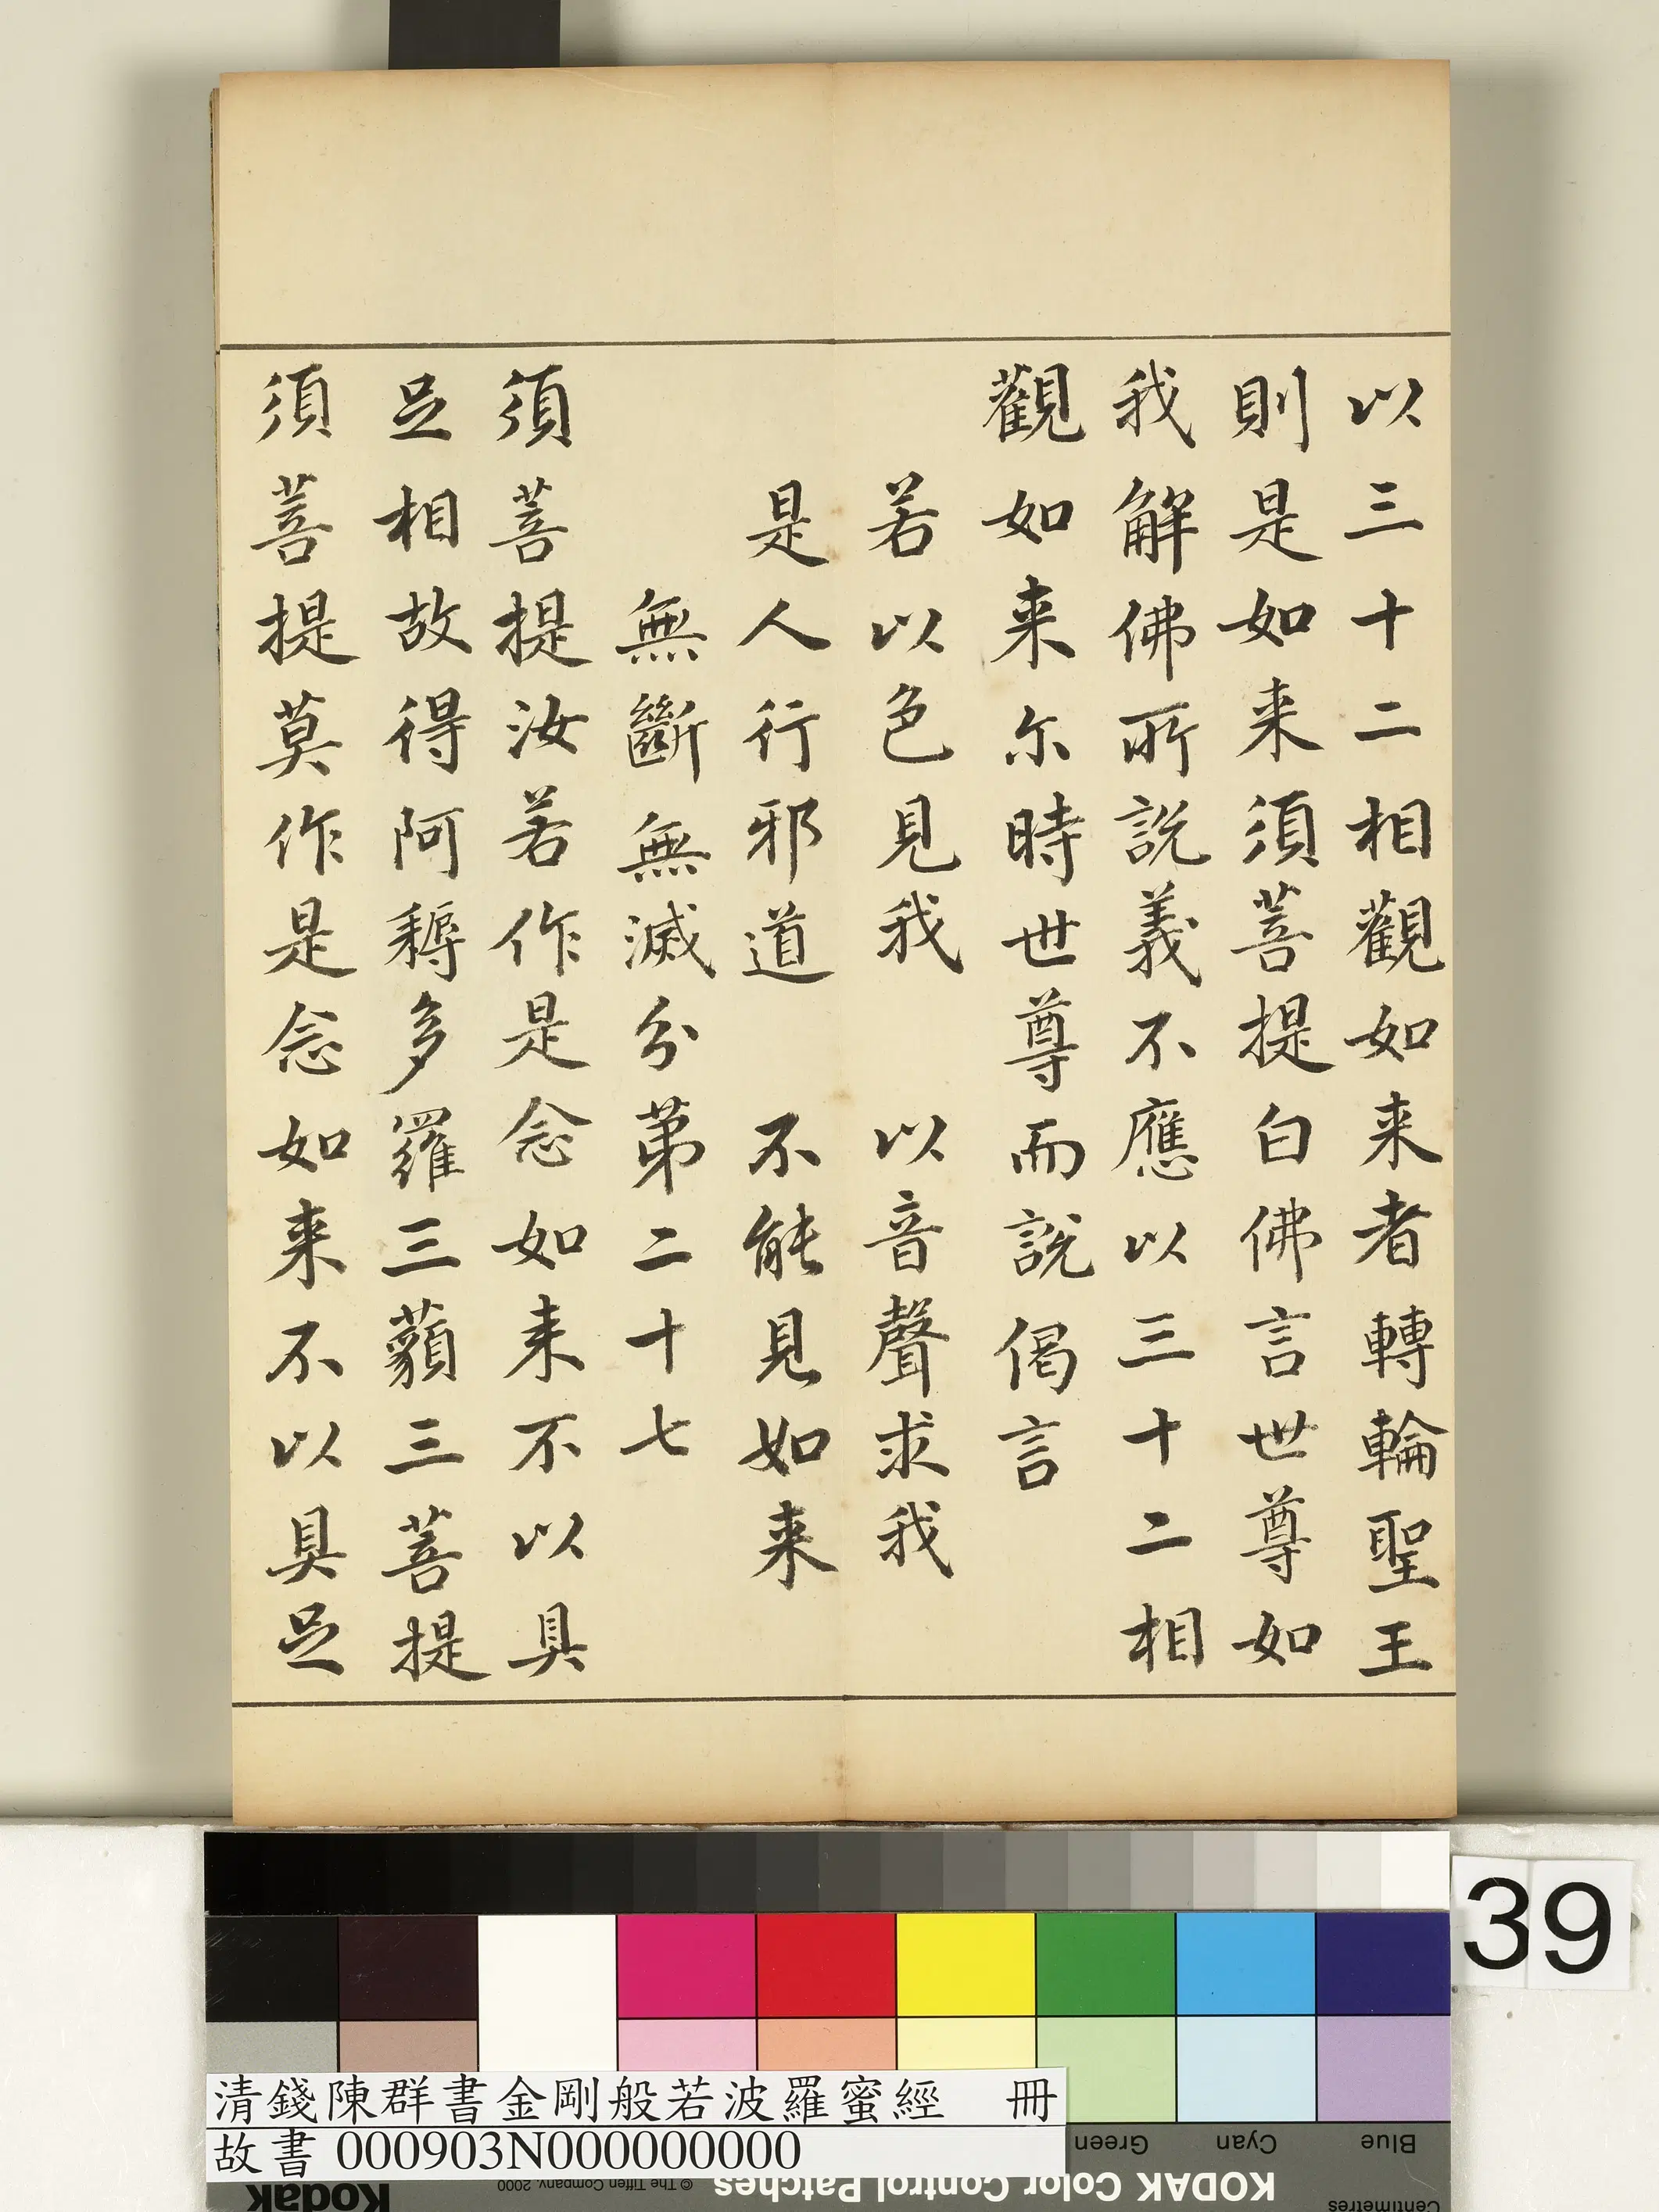 以三十二相觀如来者轉輪聖王
則是如来須菩提白佛言世尊如
我解佛所說義不應以三十二相
觀如来尔時世尊而說偈言
若以色見我　以音聲求我
是人行邪道　不能見如来
無斷無滅分第二十七
須菩提汝若作是念如来不以具
足相故得阿耨多羅三藐三菩提
須菩提莫作是念如来不以具足
39
清錢陳群書金剛般若波羅蜜經　冊
故書 000903N000000000
Green Cyan Blue
Kodak © The Tiffen Company, 2000 KODAK Color Control Patches Centimetres